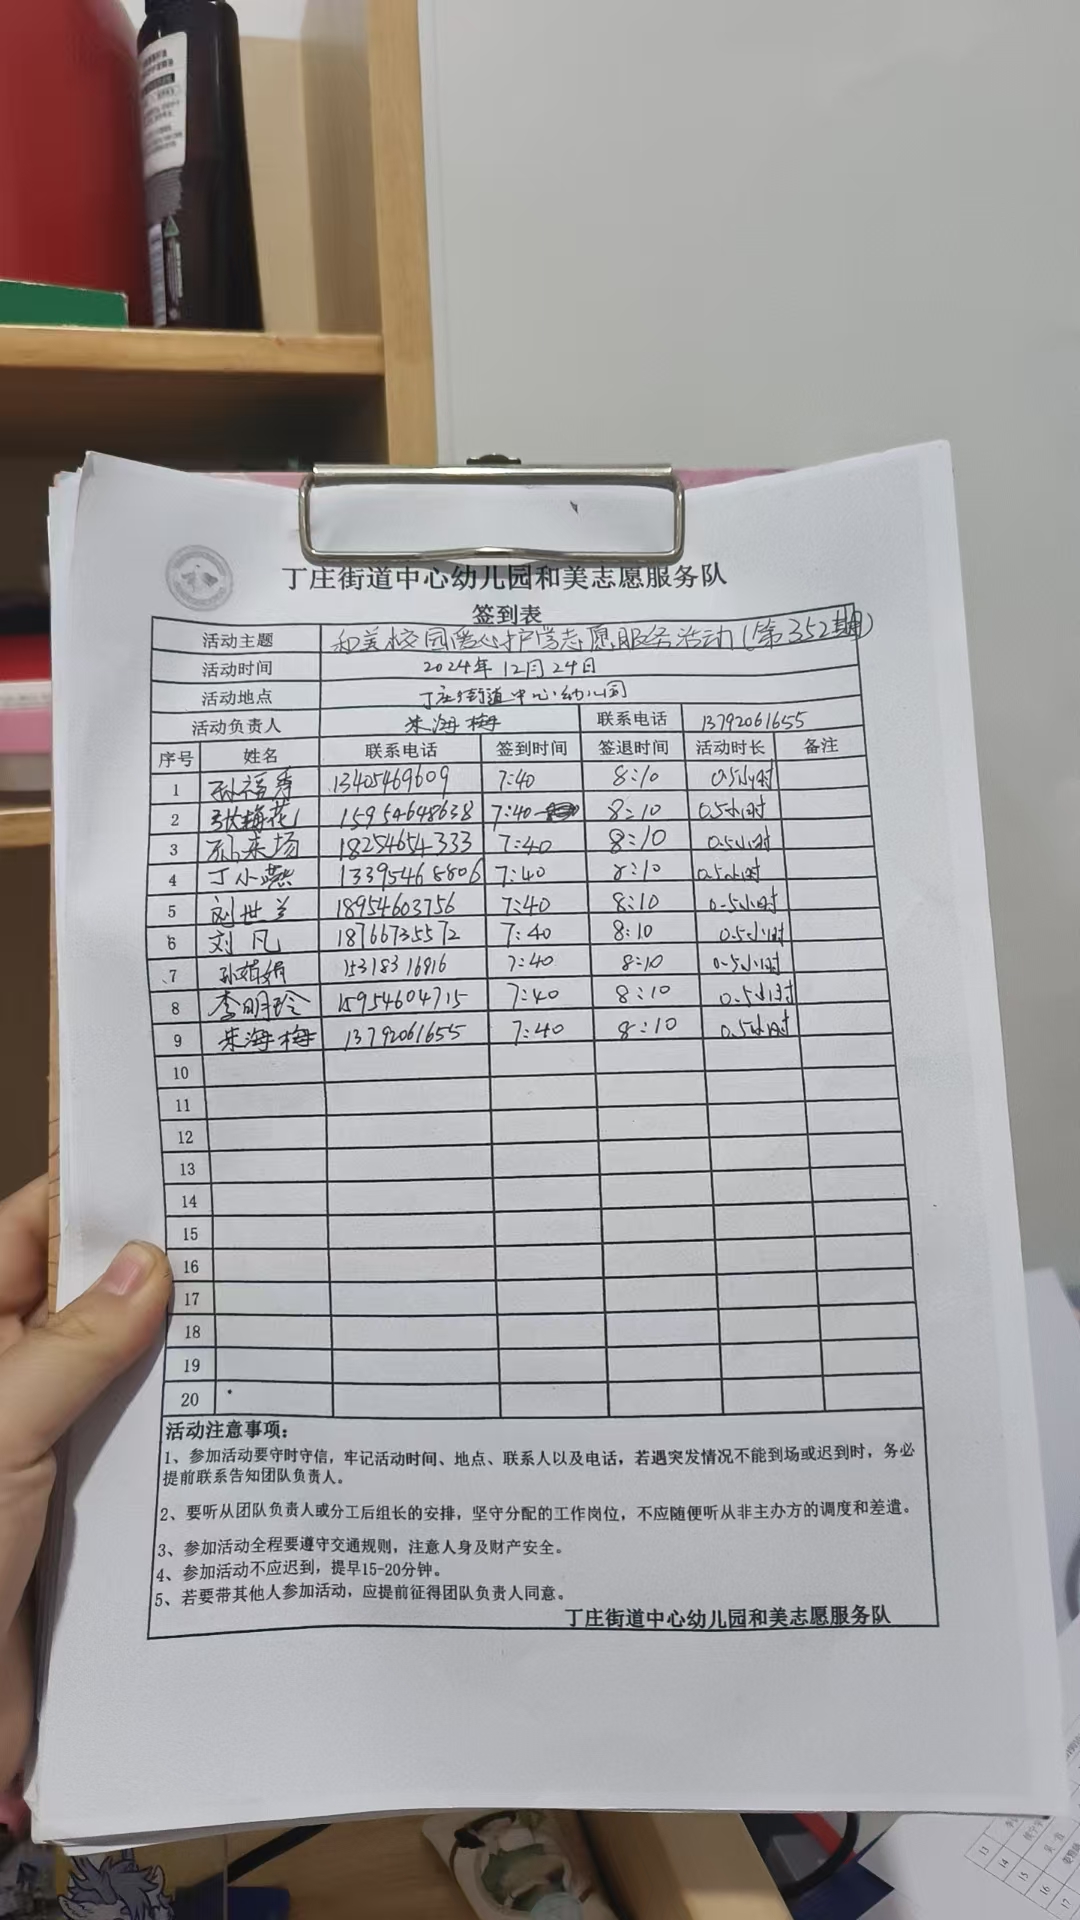 丁庄街道中心幼儿园和美志愿服务队
签到表
活动主题 和美校园爱心护学志愿服务活动(第352期)
活动时间 2024年12月24日
活动地点 丁庄街道中心幼儿园
活动负责人 朱海梅 联系电话 13792061655
序号 姓名 联系电话 签到时间 签退时间 活动时长 备注
1 孙福秀 13405469609 7:40 8:10 0.5小时
2 张梅花 15954648638 7:40 8:10 0.5小时
3 孙来场 18254654333 7:40 8:10 0.5小时
4 丁小燕 13395468806 7:40 8:10 0.5小时
5 刘世兰 18954603756 7:40 8:10 0.5小时
6 刘凡 18766735572 7:40 8:10 0.5小时
7 孙娟娟 15318316916 7:40 8:10 0.5小时
8 李明玲 15954604715 7:40 8:10 0.5小时
9 朱海梅 13792061655 7:40 8:10 0.5小时
10
11
12
13
14
15
16
17
18
19
20
活动注意事项:
1、参加活动要守时守信,牢记活动时间、地点、联系人以及电话,若遇突发情况不能到场或迟到时,务必
提前联系告知团队负责人。
2、要听从团队负责人或分工后组长的安排,坚守分配的工作岗位,不应随便听从非主办方的调度和差遣。
3、参加活动全程要遵守交通规则,注意人身及财产安全。
4、参加活动不应迟到,提早15-20分钟。
5、若要带其他人参加活动,应提前征得团队负责人同意。
丁庄街道中心幼儿园和美志愿服务队
13
14
15
16
17